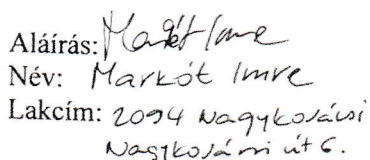 Aláírás: Markót Imre
Név: Markót Imre
Lakcím: 2094 Nagykovácsi
Nagykovácsi út 6.